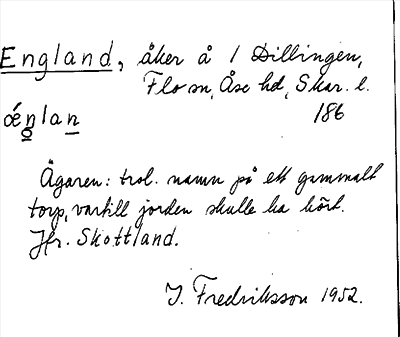 England, åker å 1 Dillingen,
Flo sn, Åse hd, Skar. l.
186
Ägaren: trol. namn på ett gammalt
torp, vartill jorden skulle ha hört.
Jfr. Skottland.
J. Fredriksson 1952.